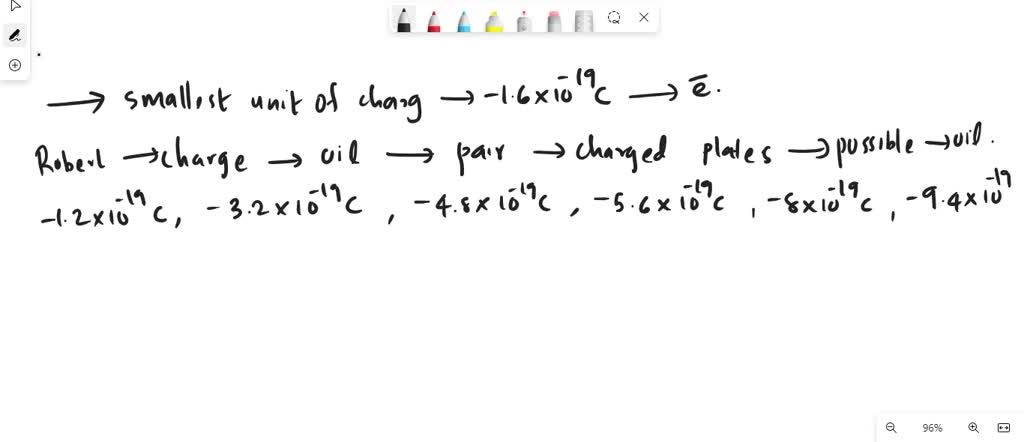 → smallest unit of charg → -1.6×10⁻¹⁹C → e̅.
Robert → charge → oil → pair → charged plates → possible → oil.
-1.2×10⁻¹⁹C, -3.2×10⁻¹⁹C, -4.8×10⁻¹⁹C, -5.6×10⁻¹⁹C, -8×10⁻¹⁹C, -9.4×10⁻¹⁹
96%